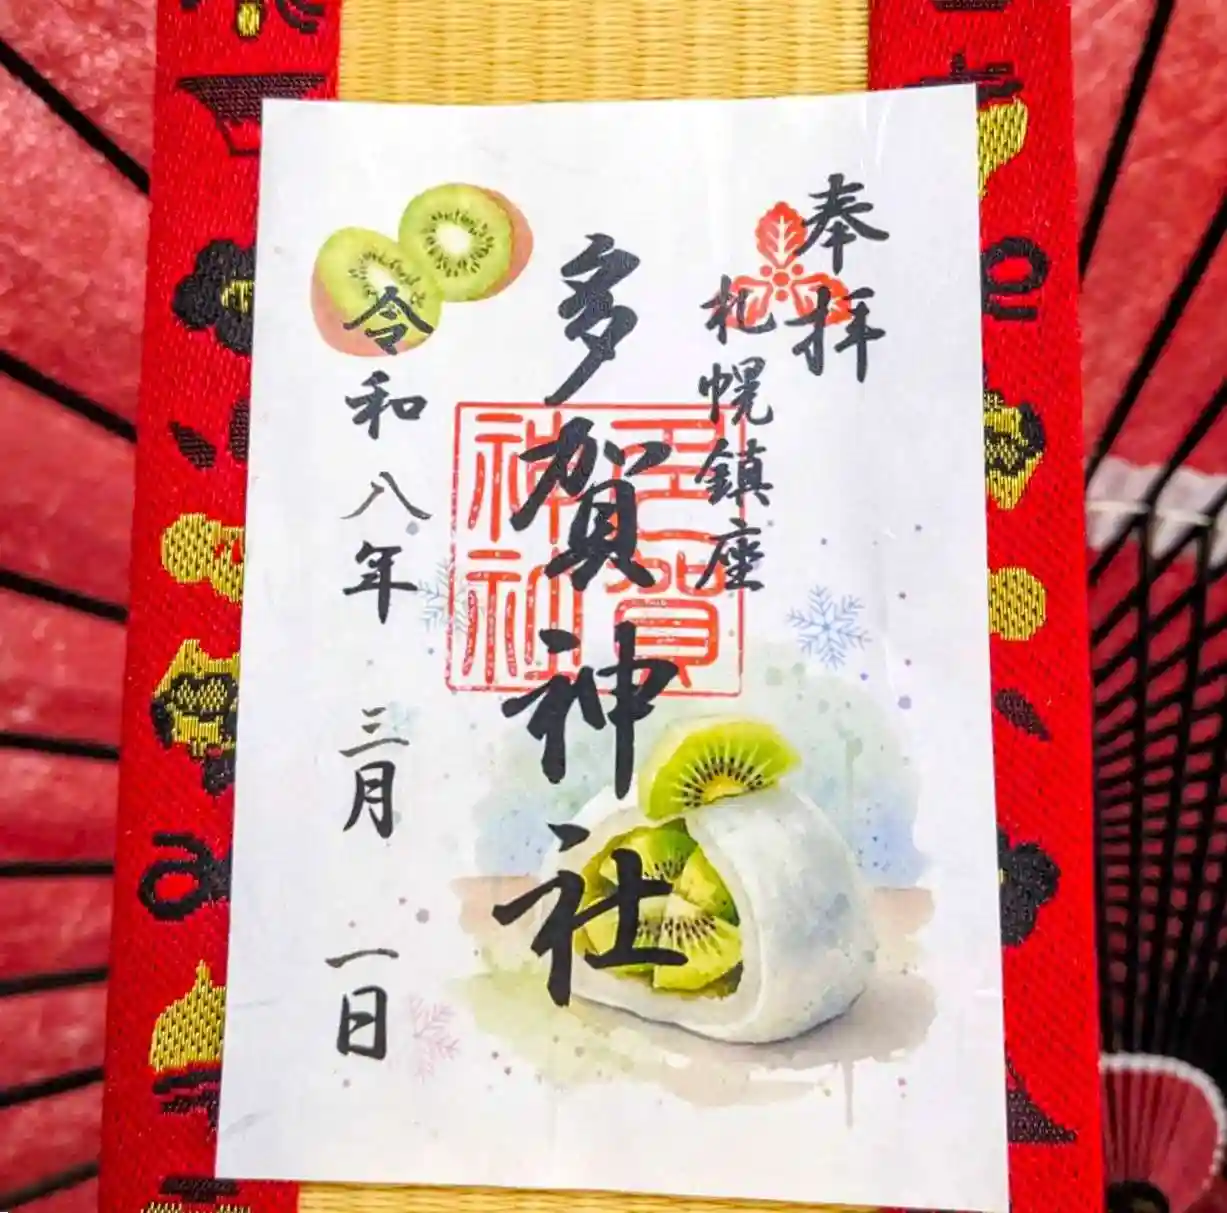 奉拝
札幌鎮座
多賀神社
多賀
神社
令和八年 三月 一日